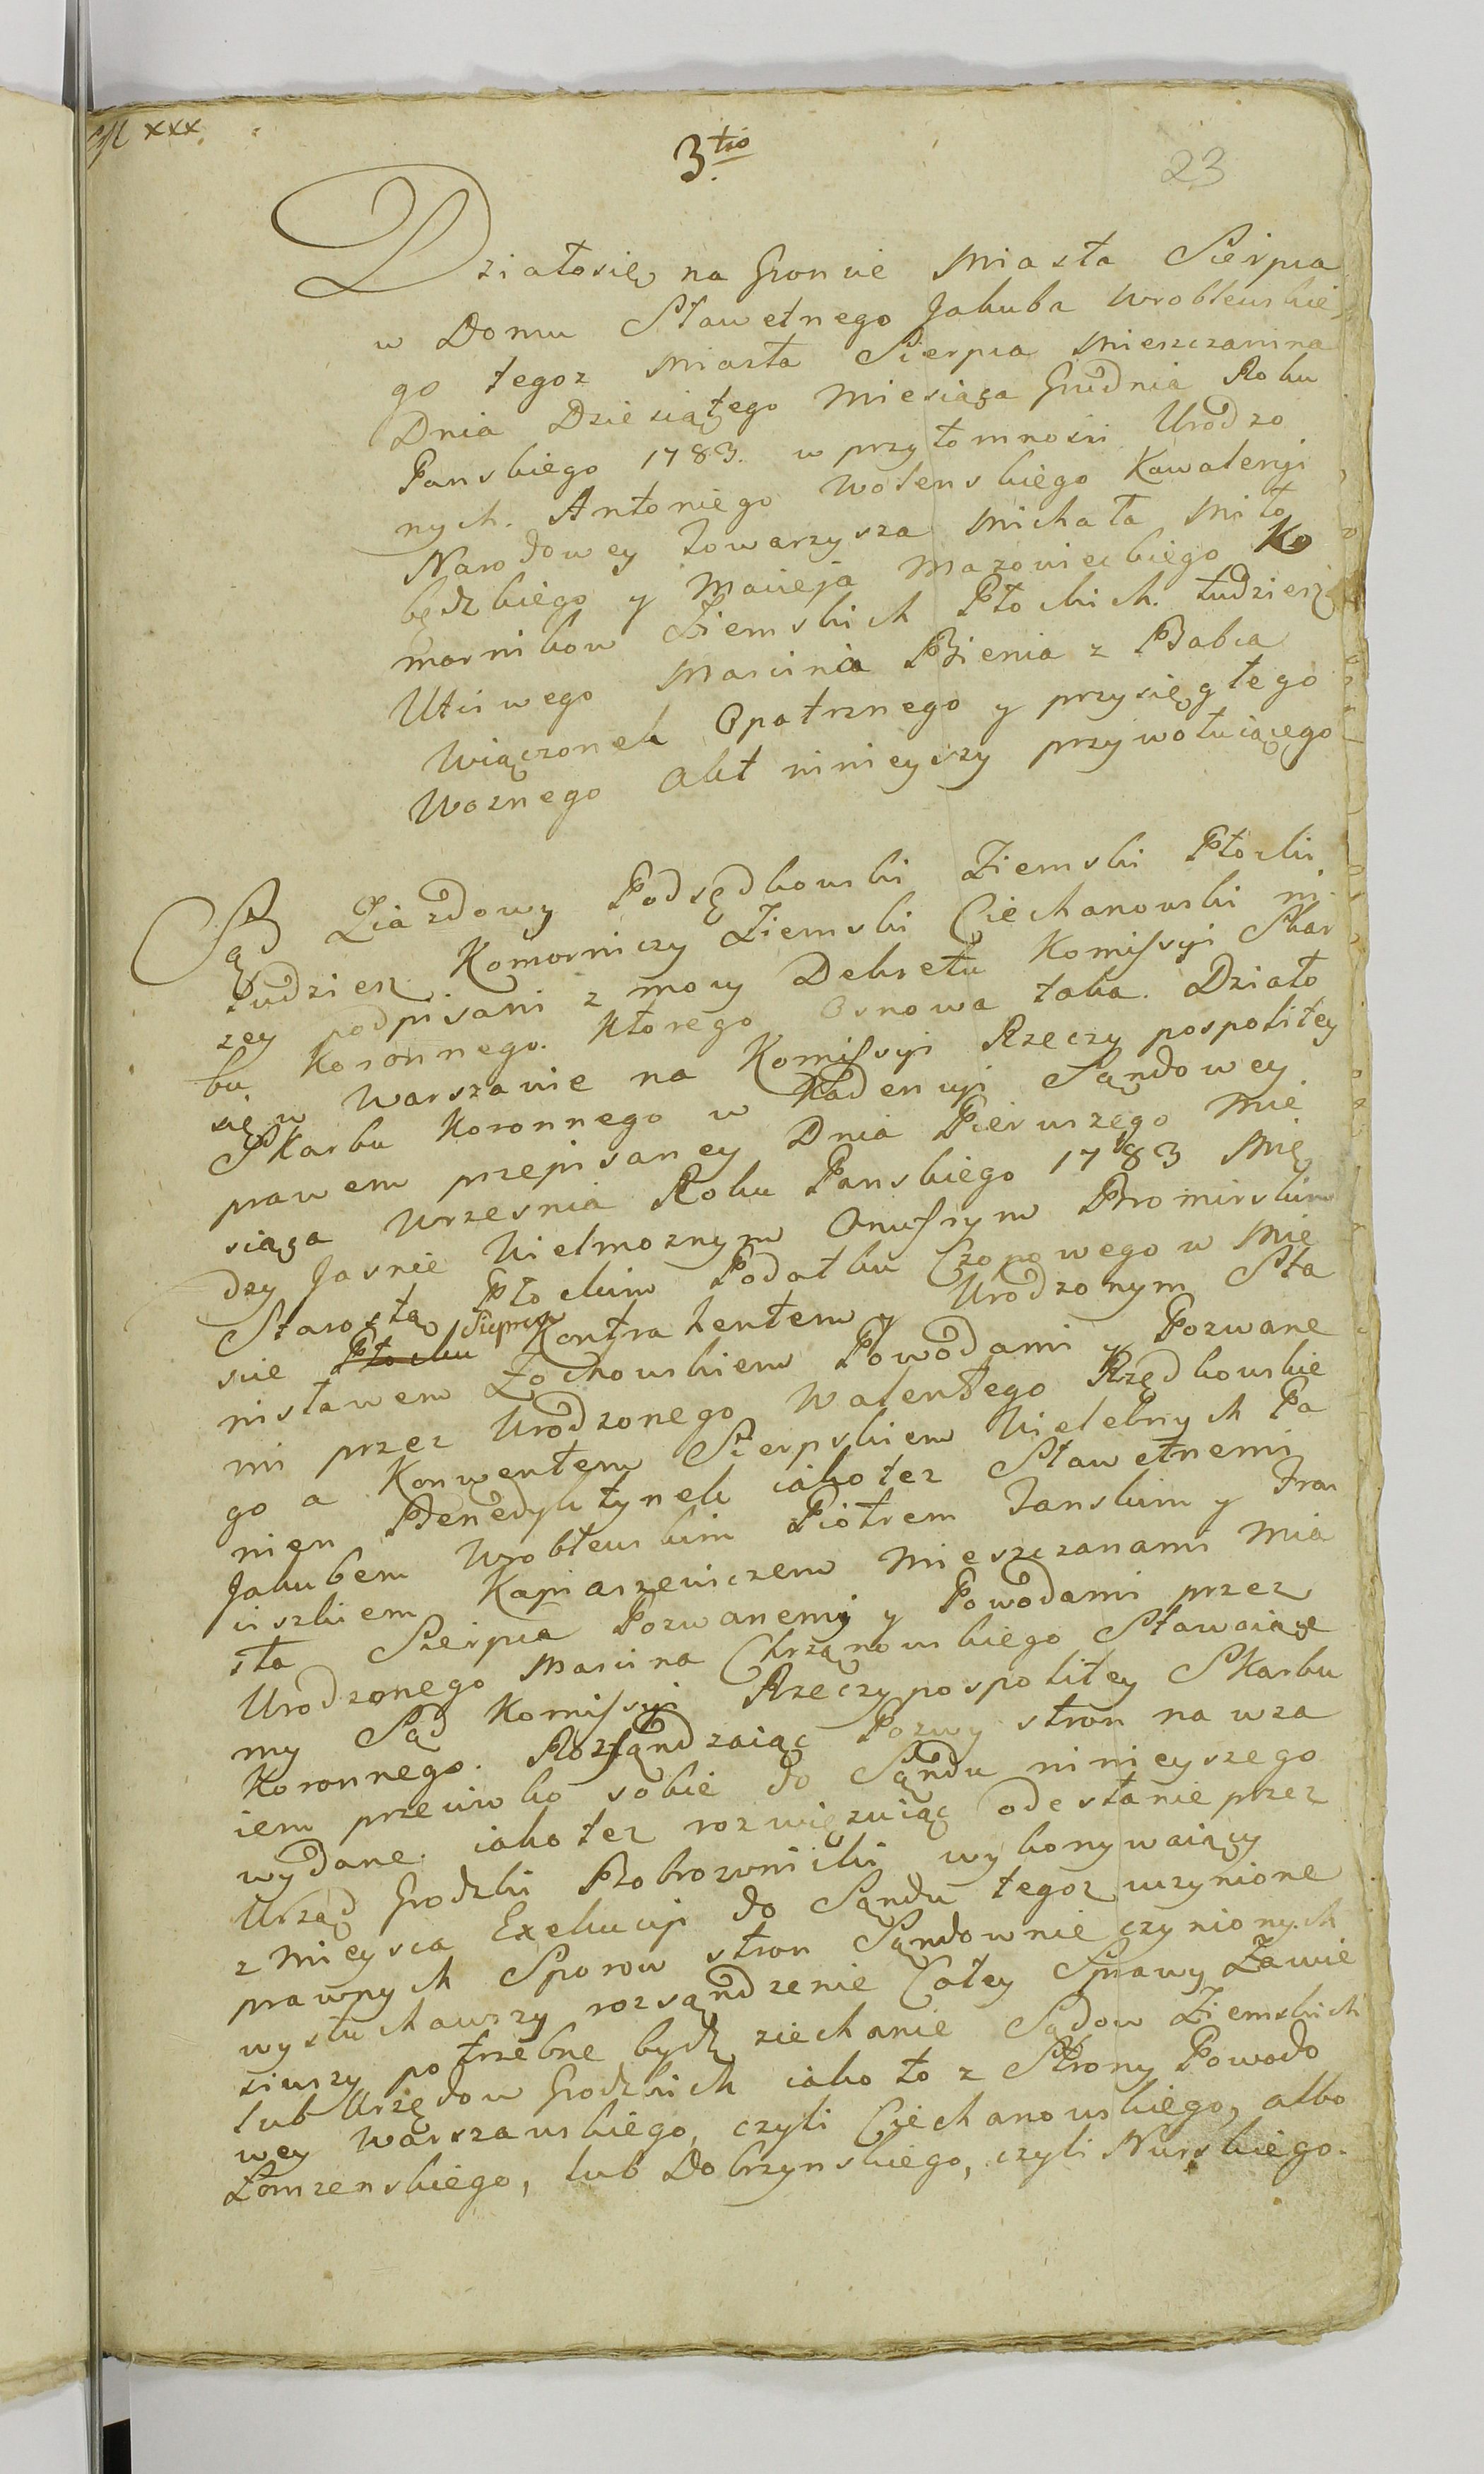 xxx
3tio
23
Działosię na Groncie Miasta Sierpca
w Domu Sławetnego Jakuba Wroblewskie
go tegoz Miasta Sierpca Mieszczanina
Dnia Dziesiątego Miesiąca Grudnia Roku
Panskiego 1783. w przytomnosci Urodzo
nych. Antoniego Wolenskiego Kawaleryi
Narodowey Towarzysza Michała Miło
będzkiego y Macieja Mazowieckiego Ko
mornikow Ziemskich Płockich. tudziesz
Utciwego Marcina Bienia z Babca
Wiączonek Opatrznego y przysięgłego
Woznego Akt ninieyszy przywołuiącego
Sąd Ziazdowy Podsędkowski Ziemski Płocki
Tudziesz Komorniczy Ziemski Ciechanowski ni
zey podpisani z mocy Dekretu Komissyi Skar
bu Koronnego. Ktorego Osnowa taka. Działo
się w Warszawie na Komissyi Rzeczypospolitey
Skarbu Koronnego w Kadencyi Sądowey
prawem przepisaney Dnia Pierwszego Mie
siąca Wrzesnia Roku Panskiego 1783 Mię
dzy Jasnie Wielmoznym Onufrym Bromirskim
Starostą Płockim Podatku Czopowego w Mie
scie Płocku Sierpcu Kontrahentem y Urodzonym Sta
nisławem Zochowskiem Powodami y Pozwane
mi przez Urodzonego Walentego Rzędkowskie
go a Konwentem Sierpskiem Wielebnych Pa
nien Benedyktynek iakotez Sławetnemi
Jakubem Wroblewskim Piotrem Janskim y Fran
ciszkiem Kapiaszewiczem Mieszczanami Mia
sta Sierpca Pozwanemi y Powodami przez
Urodzonego Marcina Chrząnowskiego Stawaiące
my Sąd Komissyi Rzeczypospolitey Skarbu
Koronnego. Rozsąndzaiąc Pozwy stron nawza
iem przeciwko sobie do Sąndu ninieyszego
wydane. iakotez rozwięzuiąc odesłanie przez
Urząd Grodzki Bobrownicki wykonywaiący
z mieysca Exekucyi do Sąndu tegoz uczynione
prawnych Sporow stron Sąndownie czynionych
wysłuchawszy rozsąndzenie Całey Sprawy Zawie
siwszy potrzebne bydz ziechanie Sądow Ziemskich
lub Urzędow Grodzkich iako to z Strony Powodo
wey Warszawskiego, czyli Ciechanowskiego, albo
Łomzenskiego, lub Dobrzynskiego, czyli Nurskiego.